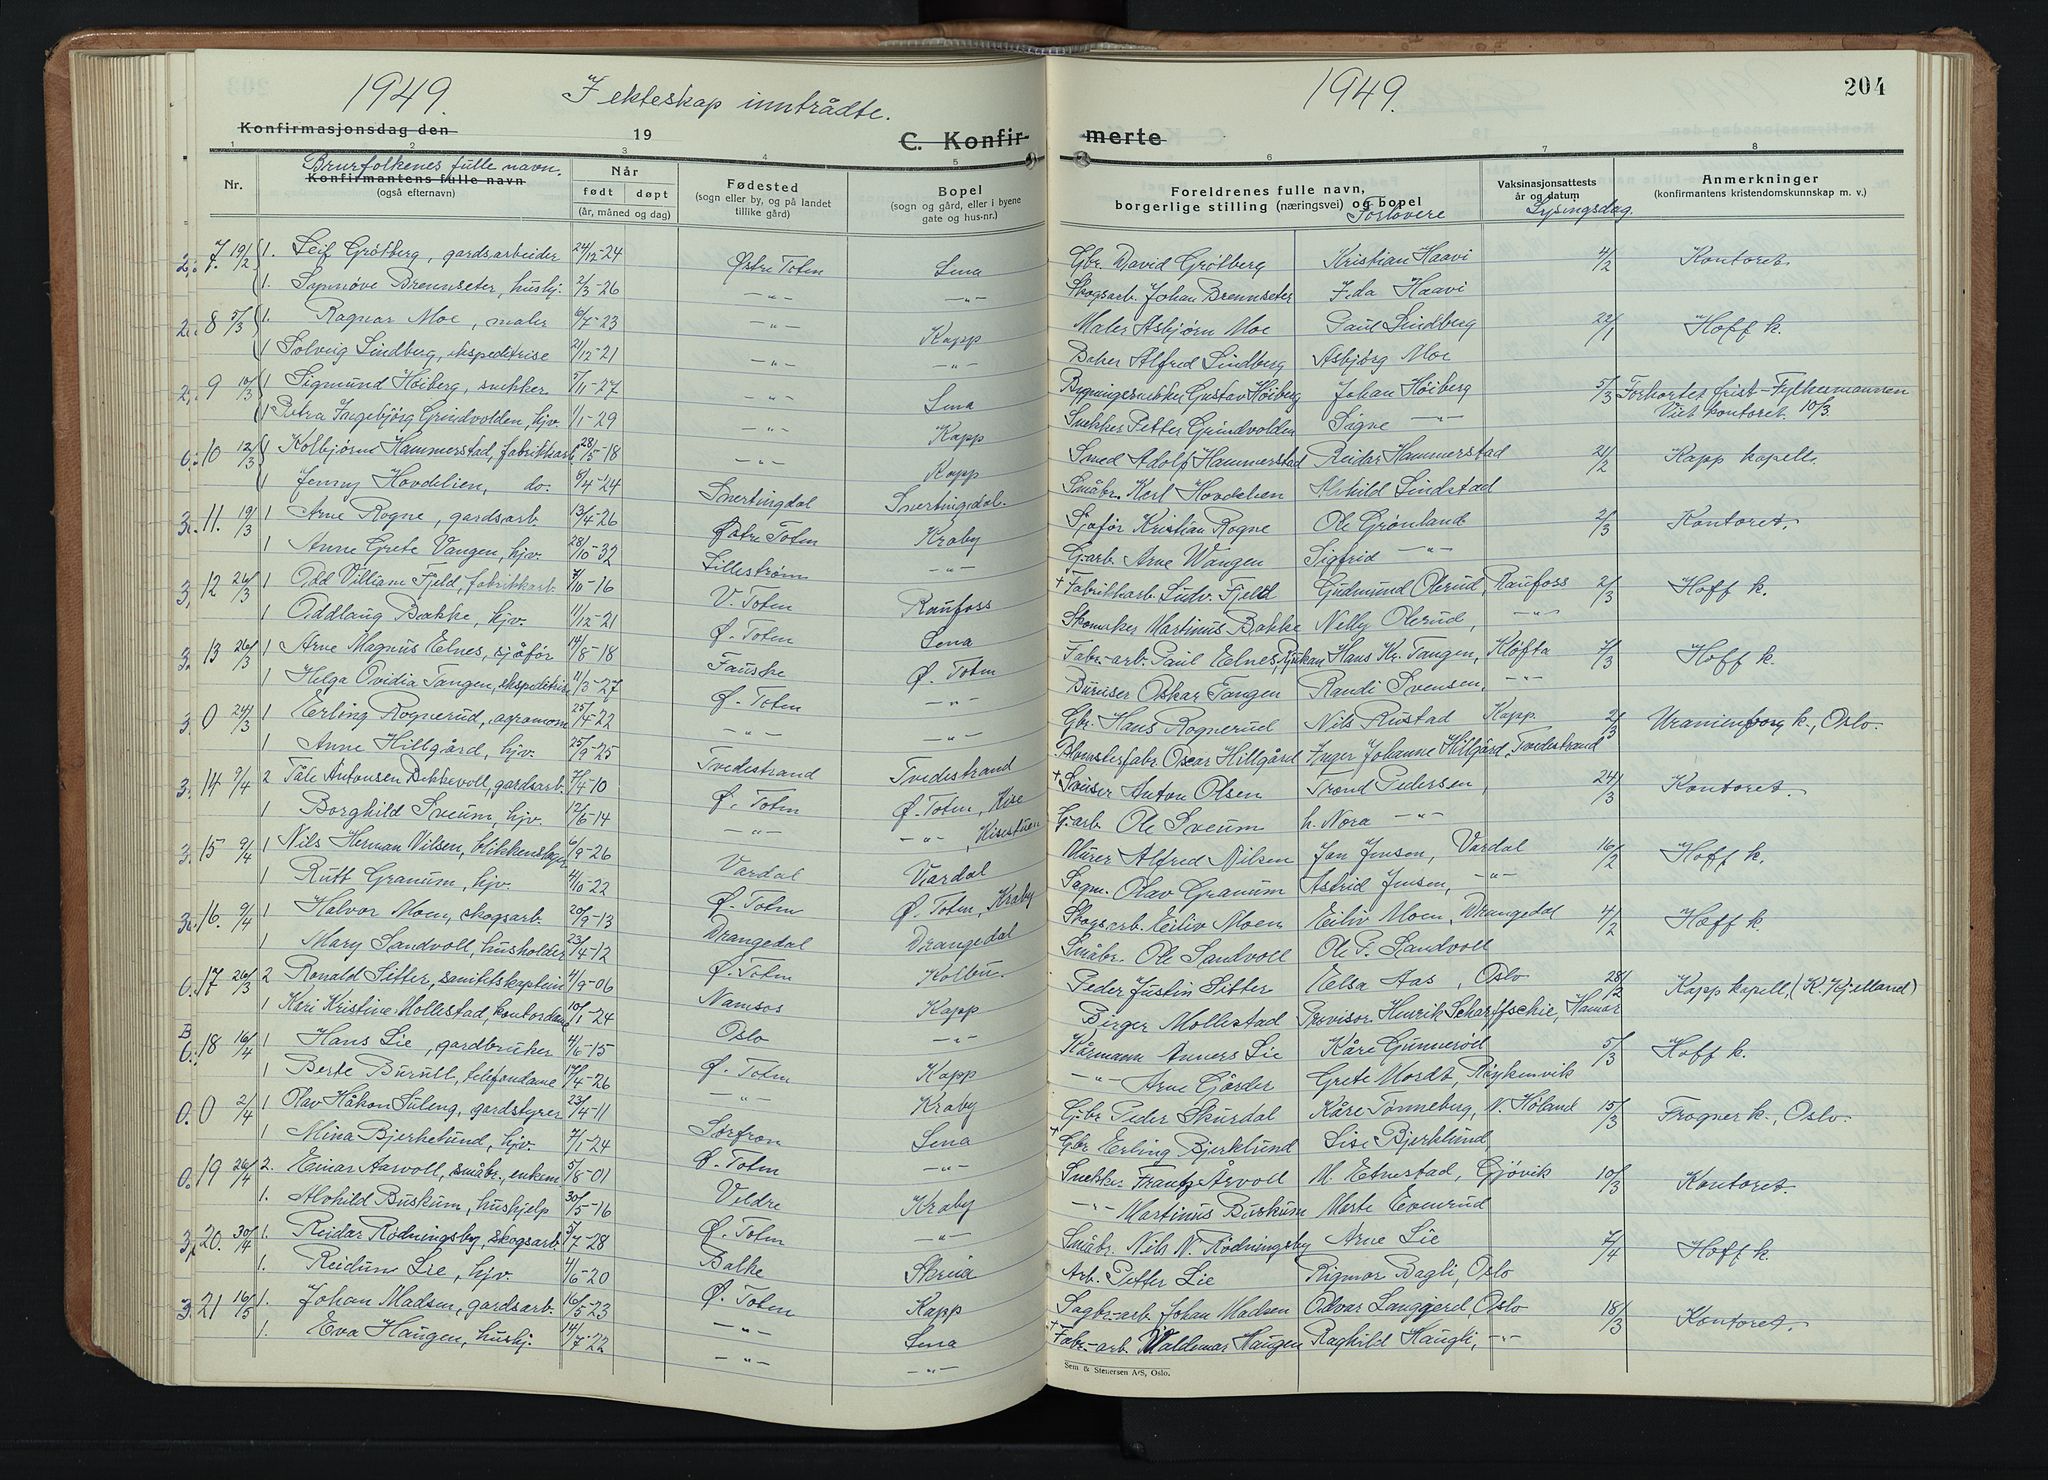 1949. I ekteskap inntrådte. 1949. 204
Konfirmasjonsdag den 19 C. Konfirmerte
1 2 3 4 5 6 7 8
Nr. Brurfolkenes fulle navn. Konfirmantens fulle navn (også efternavn) Når født døpt (år, måned og dag) Fødested (sogn eller by, og på landet tillike gård) Bopel (sogn og gård, eller i byene gate og hus-nr.) Foreldrenes fulle navn, borgerlige stilling (næringsvei) og bopel Forlovere Vaksinasjonsattests år og datum Lysingsdag. Anmerkninger (konfirmantens kristendomskunnskap m. v.)
2. 7. 19/2 1. Leif Grøtberg, gardsarbeider 24/12-24 Østre Toten Lena Gbr. David Grøtberg Kristian Haavi 4/2 Kontoret
1. Synnøve Brennseter, hushj. 2/3-26 -"- -"- Skogsarb. Johan Brennseter Ida Haavi
2. 8 5/3 1. Ragnar Moe, maler 6/7-23 -"- Kapp Maler Asbjørn Moe Paul Lindberg 22/1 Hoff k.
1 Solveig Lindberg, ekspeditrise 21/12-21 -"- -"- Baker Alfred Lindberg Asbjørg Moe
2. 9 10/3 1 Sigmund Høiberg, snekker 5/11-27 -"- Lena Bygningssnekker Gustav Høiberg Johan Høiberg 5/3 Forkortet frist - Fylkesmannen
1 Petra Ingebjørg Grindvolden, hjv. 1/1-29 -"- Kapp Snekker Petter Grindvolden Signe -"- Viet kontoret 10/3.
0. 10 12/3 1 Kolbjørn Hammerstad, fabrikkarb. 28/5-18 -"- Kapp Smed Adolf Hammerstad Reidar Hammerstad 21/2 Kapp kapell.
1 Jenny Hovdelien, do. 6/4-24 Snertingdal Snertingsdal. Småbr. Karl Hovdelien Alvhild Lindstad
3. 11 19/3 1 Arne Rogne, gardsarb 13/4-26 Østre Toten Kraby Sjåfør Kristian Rogne Ole Grønland 2/3 Kontoret.
1 Anne Grete Vangen, hjv. 28/10-32 Lillestrøm -"- G.arb Arne Wangen Sigfrid -"-
3. 12 26/3 1 Odd Villiam Fjeld, fabrikkarb. 7/10-16 V. Toten Raufoss + Fabrikkarb. Ludv. Fjeld Gudmund Olerud, Raufoss 2/3 Hoff k.
1 Oddlaug Bakke, hjv. 11/12-21 Ø. Toten Lena Skomaker Martinus Bakke Nelly Olerud, -"-
3. 13 26/3 1 Arne Magnus Elnes, sjåfør 14/8-18 Fauske Ø. Toten Fabr.-arb. Paul Elnes, Rjukan Hans Kr. Tangen, Kløfta 7/3 Hoff k.
1 Helga Ovidia Tangen, ekspeditrise 11/3-27 Ø. Toten -"- Buruser Oskar Tangen Randi Svensen, -"-
3. 0 24/3 1 Erling Rognerud, agronom 25/4-22 -"- -"- Gbr. Hans Rognerud Nils Rustad Kapp. 2/3 Uranienborg k., Oslo.
1 Anne Hillgård, hjv. 25/9-25 Tvedestrand Tvedestrand Blomsterfabr. Oscar Hillgård Inger Johanne Hilgård, Tvedestrand
3. 14 9/4 2 Tåle Antonsen Bikkevoll, gardsarb. 7/4-10 Ø. Toten Ø. Toten, Kise + Sveiser Anton Olsen Trond Pedersen, 24/3 Kontoret.
1 Borghild Sveum, hjv. 12/6-14 -"- -"-, Kisestuen G.arb Ole Sveum h. Nora -"-
3. 15 9/4 1 Nils Herman Nilsen, blikkenslager 6/9-26 Vardal Vardal Murer Alfred Nilsen Jan Jensen, Vardal 16/2 Hoff k.
1 Rutt Granum, hjv. 4/10-22 Ø. Toten Ø. Toten, Kraby Sagm. Olav Granum Astrid Jensen, -"-
3. 16. 9/4 1 Halvor Moen, skogsarb. 20/9-13 Drangedal Drangedal Skogsarb. Eiliv Moen Eiliv Moen, Drangedal 4/2 Hoff k.
1 Mary Sandvoll, husholder 23/4-12 Ø. Toten Kolbu. Småbr. Ole Sandvoll Ole P. Sandvoll
0. 17 26/3 2 Ronald Sitter, sanitetskaptein 4/9-06 Namsos Kapp Peder Justin Sitter Elsa Aas, Oslo 28/2 Kapp kapell, (K. Kjelland)
1 Kari Kristine Mollestad, kontordame 10/1-24 Oslo -"- Birger Mollestad Provisor Henrik Scharffschie, Hamar
B 0. 18 16/4 1 Hans Lie, gardbruker 4/6-15 Ø. Toten Kapp Kårmann Anners Lie Kåre Gunnerød 5/3 Hoff k.
1 Berte Burull, telefondame 17/4-26 -"- Kraby -"- Arne Gjerder Grete Mordt, Røykenvik
0. 0 2/4 1 Olav Håkon Suleng, gardstyrer 23/4-11 Sørfron Lena Gbr Peder Skurdal Kåre Tønneberg, N. Høland 15/3 Frogner k., Oslo.
1 Mina Bjerkelund, hjv. 7/1-24 Ø. Toten -"- + Gbr Erling Bjerklund Lise Bjerklund,
0. 19 26/4 2. Einar Aarvoll, småbr., enkem. 5/8-01 Veldre Kraby Snekker Frantz Årvoll M. Etnestad, Gjøvik 10/3 Kontoret.
1. Alvhild Buskum, hushjelp 30/5-16 Ø. Toten -"- -"- Martinus Buskum Marte Evenrud
3. 20. 30/4 1. Reidar Rødningsby, skogsarb. 5/7-28 Balke Skreia Småbr. Nils N. Rødningsby Arne Lie 7/4 Hoff k.
1. Reidun Lie, hjv. 4/6-20 Ø. Toten Kapp Arb. Petter Lie Rigmor Bagli, Oslo
3. 21 16/5 1. Johan Madsen, gardsarb. 16/5-23 -"- Lena Sagbr.-arb Johan Madsen Odvar Langgjerd, Oslo 18/3 Kontoret.
1. Eva Haugen, hushj. 14/7-22 -"- -"- + Fabr.-arb. Waldemar Haugen Raghild Haugli, -"-
Sem & Stenersen A/S, Oslo.